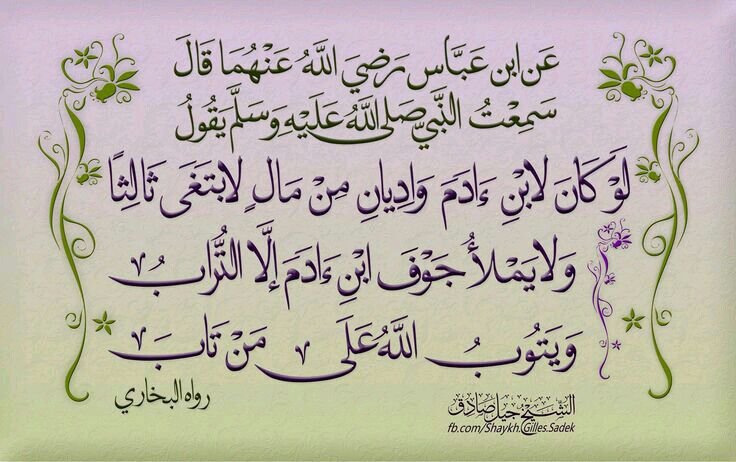 عَنِ ابنِ عَبَّاسٍ رَضِيَ اللَّهُ عَنْهُمَا قَالَ
سَمِعْتُ النَّبِيَّ صَلَى اللَّهُ عَلَيْهِ وَسَلَّمَ يَقُولُ
لَوْ كَانَ لابْنِ ءَادَمَ وَادِيَانِ مِنْ مَالٍ لابْتَغَى ثَالِثًا
وَلا يَمْلأُ جَوْفَ ابْنِ ءَادَمَ إِلَّا التُّرَابُ
وَيَتُوبُ اللَّهُ عَلَى مَنْ تَابَ
رواه البخاري
الشَّيخ جيل صَادِق
fb.com/Shaykh.Gilles.Sadek